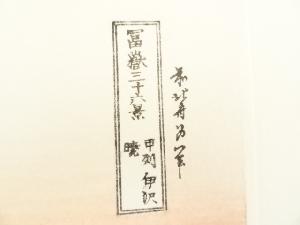 冨嶽三十六景
甲刕伊沢
暁
前北斎為一筆